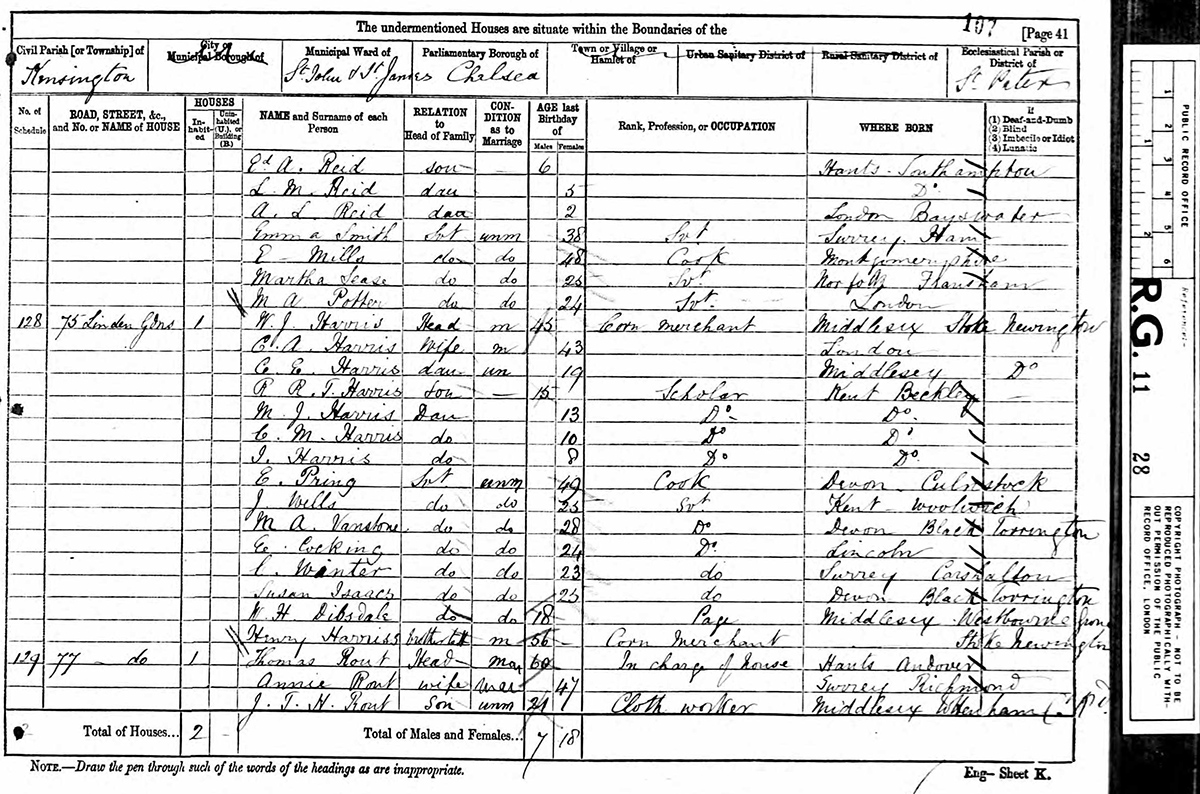 The undermentioned Houses are situate within the Boundaries of the
107 [Page 41
Civil Parish [or Township] of Kensington
City or Municipal Borough of
Municipal Ward of St John & St James
Parliamentary Borough of Chelsea
Town or Village or Hamlet of
Urban Sanitary District of
Rural Sanitary District of
Ecclesiastical Parish or District of St Peter
No. of Schedule
ROAD, STREET, &c., and No. or NAME of HOUSE
HOUSES
In-habit-ed
Unin-habited (U.), or Building (B.)
NAME and Surname of each Person
RELATION to Head of Family
CON-DITION as to Marriage
AGE last Birthday of
Males Females
Rank, Profession, or OCCUPATION
WHERE BORN
If (1) Deaf-and-Dumb (2) Blind (3) Imbecile or Idiot (4) Lunatic
Ed A. Reid son — 6 Hants Southampton
L. M. Reid dau 5 Do
A. L. Reid dau 2 London Bayswater
Emma Smith Svt unm 38 Svt Surrey Ham
E Mills do do 48 Cook Montgomeryshire
Martha Sease do do 25 Svt Norfolk Fransham
M A Potter do do 24 Svt London
128 75 Linden Gdns 1 W. J. Harris Head m 45 Corn merchant Middlesex Stoke Newington
C. A. Harris Wife m 43 London
C. E. Harris dau un 19 Middlesex Do
R R. T. Harris son — 15 Scholar Kent Beckley
M. J. Harris Dau 13 Do Do
C. M. Harris do 10 Do Do
I. Harris do 8 Do Do
E. Pring Svt unm 49 Cook Devon Culmstock
J Wells do do 25 Svt Kent Woolwich
M A. Vanstone do do 28 Do Devon Black Torrington
E. Cocking do do 24 Do Lincoln
C. Winter do do 23 do Surrey Carshalton
Susan Isaacs do do 25 do Devon Black Torrington
W. H. Dibsdale do do 18 Page Middlesex Westbourne Grove
Henry Harriss m 56 Corn Merchant Stoke Newington
129 77 — do 1 Thomas Rout Head mar 60 In charge of house Hants Andover
Annie Rout wife mar 47 Surrey Richmond
J. T. H. Rout Son unm 21 Cloth worker Middlesex
Total of Houses... 2 Total of Males and Females... 7 18
NOTE.—Draw the pen through such of the words of the headings as are inappropriate.
Eng— Sheet K.
PUBLIC RECORD OFFICE
1 2 3 4 5 6
1 2
Reference:-
R.G. 11 28
COPYRIGHT PHOTOGRAPH - NOT TO BE REPRODUCED PHOTOGRAPHICALLY WITH-OUT PERMISSION OF THE PUBLIC RECORD OFFICE, LONDON